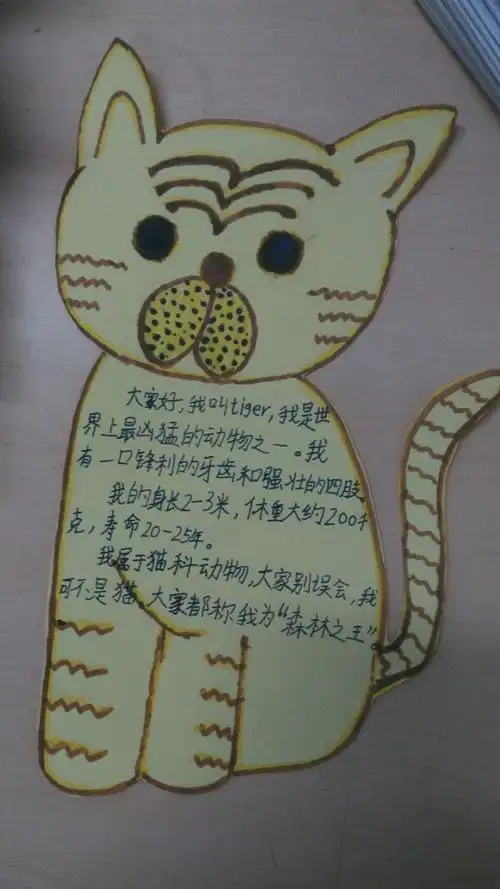 大家好，我叫tiger，我是世
界上最凶猛的动物之一。我
有一口锋利的牙齿和强壮的四肢
我的身长2-3米，体重大约200千
克，寿命20-25年。
我属于猫科动物，大家别误会，我
可不是猫。大家都称我为“森林之王”。